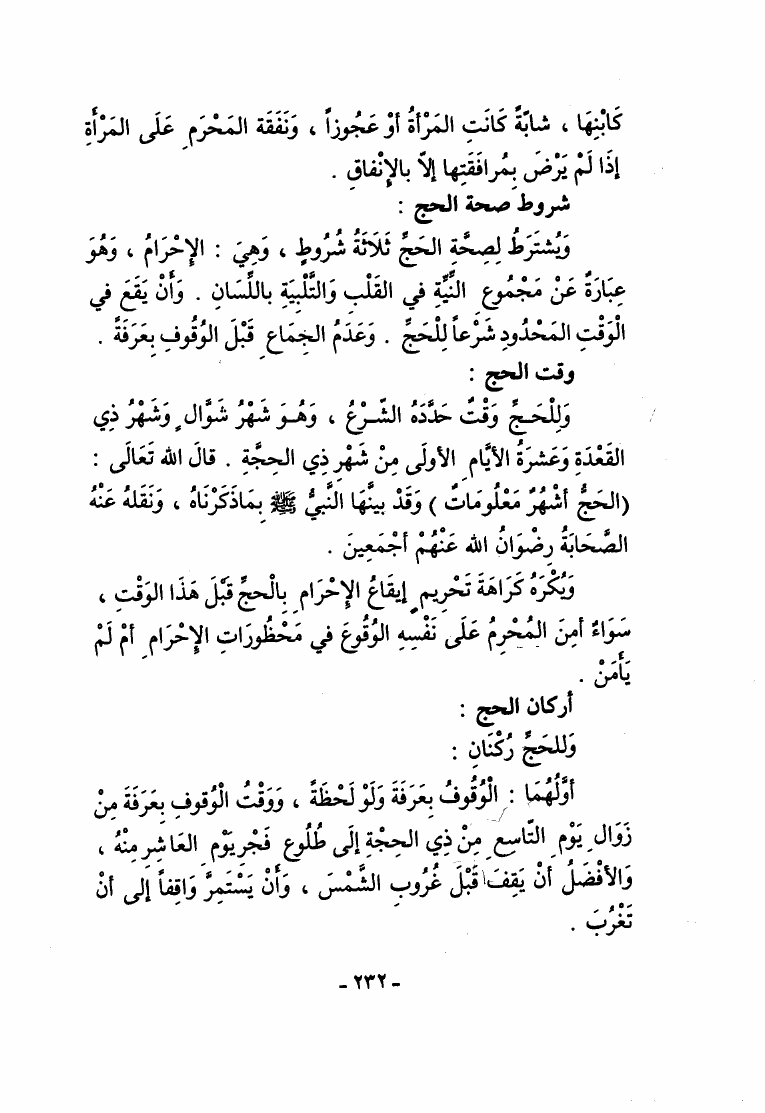 كَابْنِهَا ، شابّةً كَانَتِ المَرْأةُ أوْ عَجُوزاً ، وَنَفَقَة المَحْرَمِ عَلَى المَرْأَةِ
إذَا لَمْ يَرْضَ بِمُرافَقَتِها إلاّ بالإِنْفاقِ .
شروط صحة الحج :
وَيُشتَرَطُ لِصِحَّةِ الحَجِّ ثَلَاثَةُ شُرُوطٍ ، وَهِيَ : الإِحْرَامُ ، وَهُوَ
عِبَارَةٌ عَنْ مَجْمُوعِ النِّيَّةِ في القَلْبِ وَالتَّلْبِيَةِ باللِّسَانِ . وَأَنْ يَقَعَ في
الْوَقْتِ المَحْدُودِ شَرْعاً لِلْحَجِّ . وَعَدَمُ الجِمَاعِ قَبْلَ الوُقُوفِ بِعَرَفَةَ .
وقت الحج :
وَلِلْحَجِّ وَقْتٌ حَدَّدَهُ الشَّرْعُ ، وَهُوَ شَهْرُ شَوَّالٍ وَشَهْرُ ذِي
القَعْدَةِ وَعَشرَةُ الأيَّامِ الأولَى مِنْ شَهْرِ ذِي الحِجَّةِ . قالَ الله تَعَالَى :
(الحَجُّ أشْهُرٌ مَعْلُومَاتٌ ) وَقَدْ بينَّهَا النَّبيُّ ﷺ بِمَاذَكَرْنَاهُ ، وَنَقَلهُ عَنْهُ
الصَّحَابَةُ رِضْوَانُ الله عَنْهُمْ أجْمَعِينَ .
وَيُكْرَهُ كَرَاهَةَ تَحْرِيمٍ إيقَاعُ الإحْرَامِ بِالْحجِّ قَبْلَ هَذَا الوَقْتِ ،
سَوَاءٌ أمِنَ المُحْرِمُ عَلَى نَفْسِهِ الوُقُوعَ في مَحْظُورَاتِ الإحْرَامِ أمْ لَمْ
يَأمَنْ .
أركان الحج :
وَللحَجِّ رُكْنَانِ :
أوَّلُهُمَا : الْوُقُوفُ بِعَرَفَةَ وَلَوْ لَحْظَةً ، وَوَقْتُ الْوُقوفِ بِعَرَفَةَ مِنْ
زَوَالِ يَوْمِ التَّاسِعِ مِنْ ذِي الحِجّةِ إلَى طُلُوعِ فَجْرِ يَوْمِ العَاشرِ مِنْهُ ،
وَالأفْضَلُ أنْ يَقِفَ قَبْلَ غُرُوبِ الشَّمْسَ ، وَأنْ يَسْتَمِرَّ وَاقِفاً إلى أنْ
تَغْرُبَ .
- ٢٣٢ -